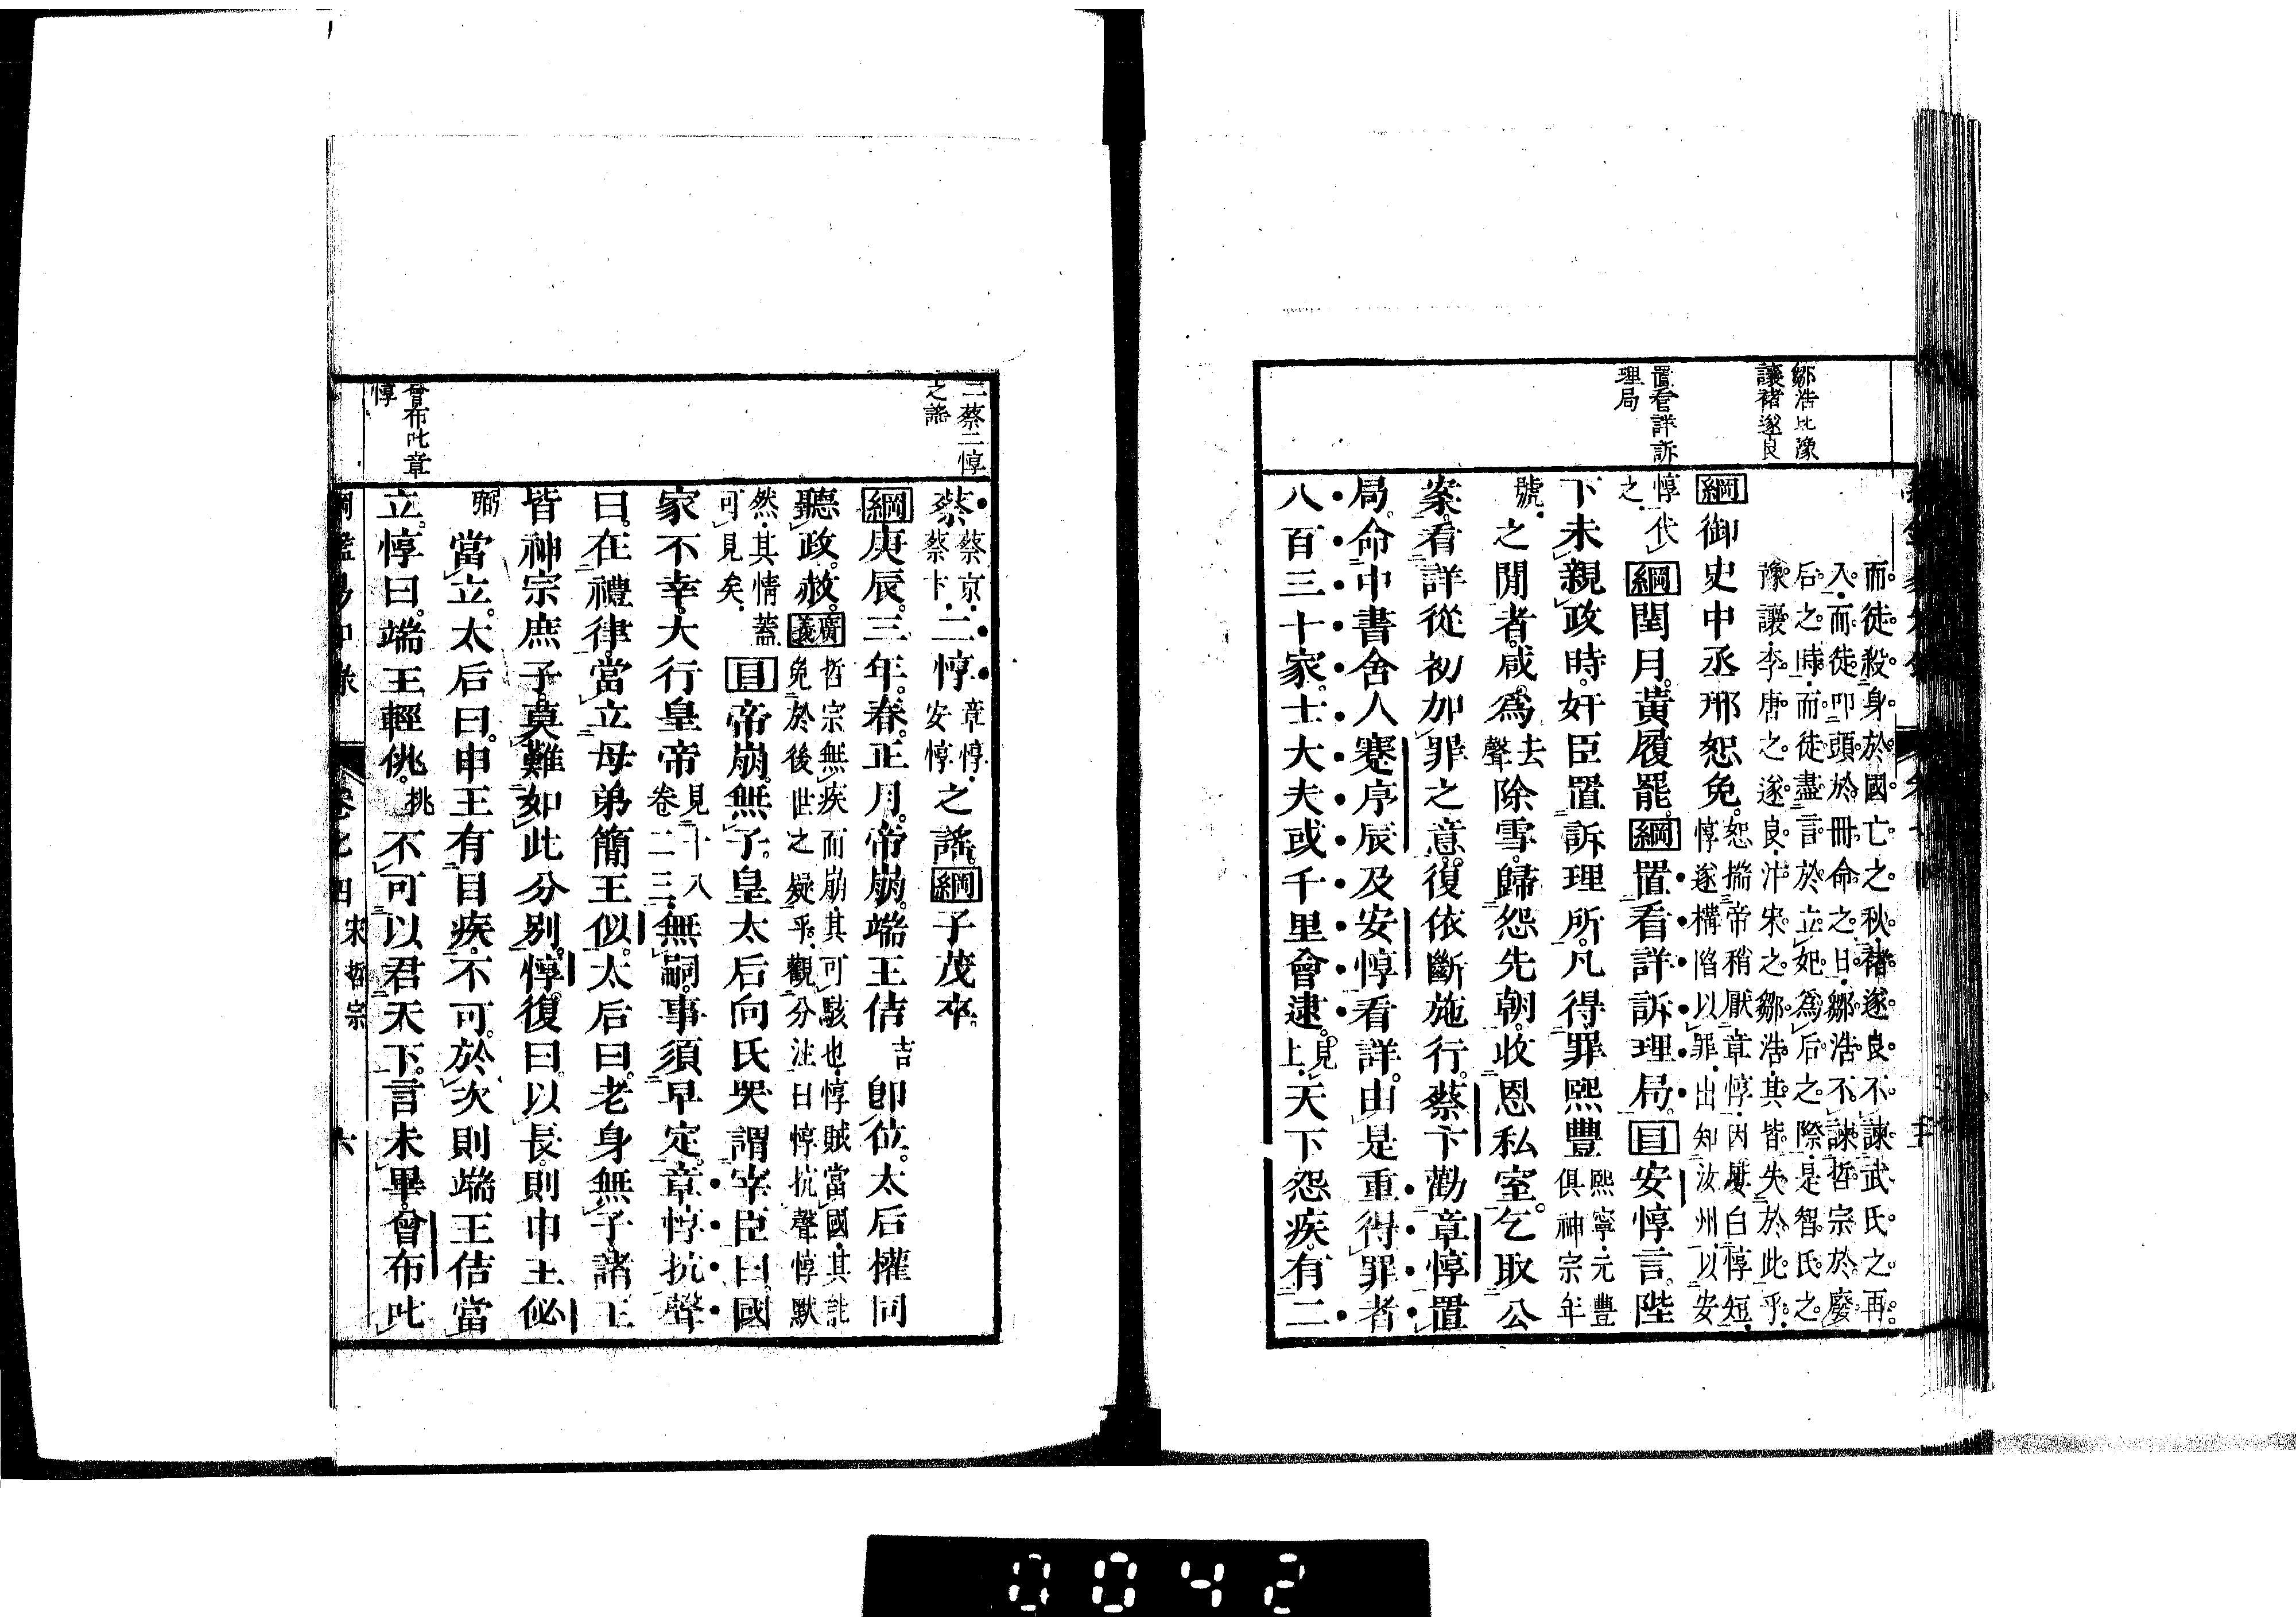 鄒浩比豫
讓褚遂良
置看詳訴
理局
而徒殺身於國亡之秋褚遂良不諫武氏之再
入而徒叩頭於冊命之日鄒浩不諫哲宗於廢
后之時而徒盡言於立妃為后之際是智氏之
豫讓李唐之遂良汴宋之鄒浩其皆失於此乎
綱御史中丞邢恕免恕揣帝稍厭章惇因屢白惇短
惇遂構陷以罪出知汝州以安
惇代
之綱閏月黃履罷綱置看詳訴理局目安惇言陛
下未親政時奸臣置訴理所凡得罪熙豐熙寧元豐
俱神宗年
號之閒者咸為去
聲除雪歸怨先朝收恩私室乞取公
案看詳從初加罪之意復依斷施行蔡卞勸章惇置
局命中書舍人蹇序辰及安惇看詳由是重得罪者
八百三十家士大夫或千里會逮見
上天下怨疾有二
二蔡二惇
之謠
曾布叱章
惇
蔡蔡京
蔡卞二惇章惇
安惇之謠綱子茂卒
綱庚辰三年春正月帝崩端王佶吉卽位太后權同
聽政赦廣義哲宗無疾而崩其可駭也惇賊當國其能
免於後世之疑乎觀分注曰惇抗聲惇默
然其情蓋
可見矣目帝崩無子皇太后向氏哭謂宰臣曰國
家不幸大行皇帝見十八
卷二三無嗣事須早定章惇抗聲
曰在禮律當立母弟簡王似太后曰老身無子諸王
皆神宗庶子莫難如此分別惇復曰以長則申王佖
弼當立太后曰申王有目疾不可於次則端王佶當
立惇曰端王輕佻挑不可以君天下言未畢曾布叱
宋哲宗
六
0042